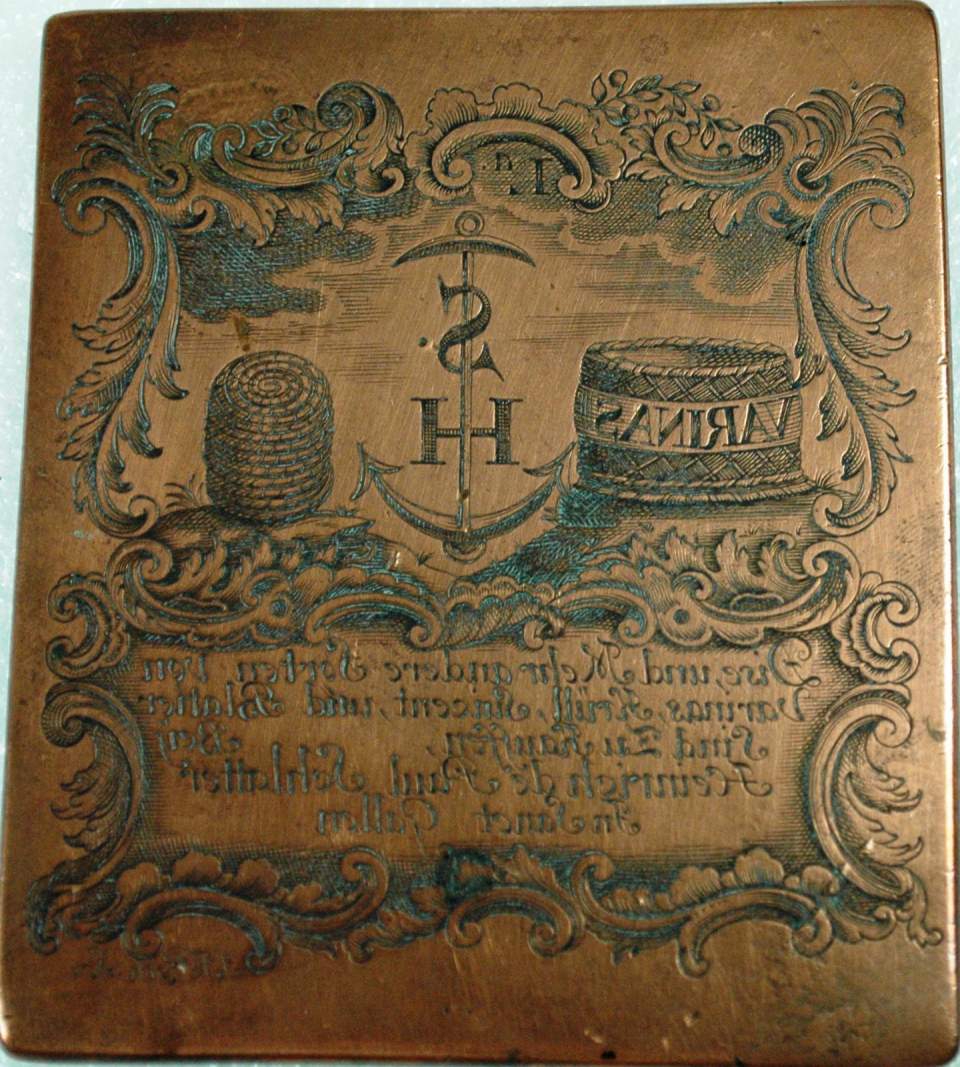 S
H
VARINAS
Dise, und Mehr andere Sorten Von
Varinas, Krüll, Sincent, und Blatter
Sind Zu Kauffen, Bey
Heinrich de Paul Schlatter
In Sanct Gallen